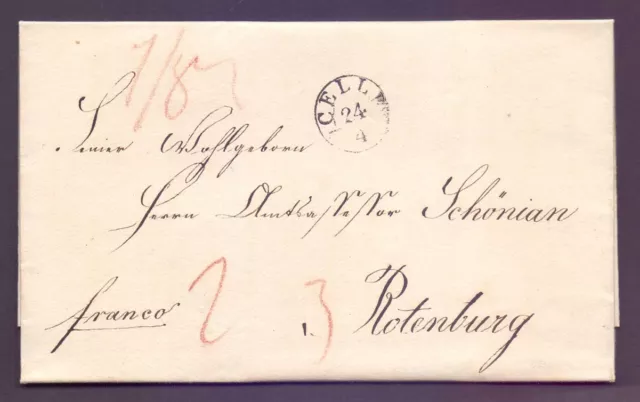 CELLE
24
4
Seiner Wohlgeborn
Herrn Amtsassessor Schönian
franco 2 3 Rotenburg